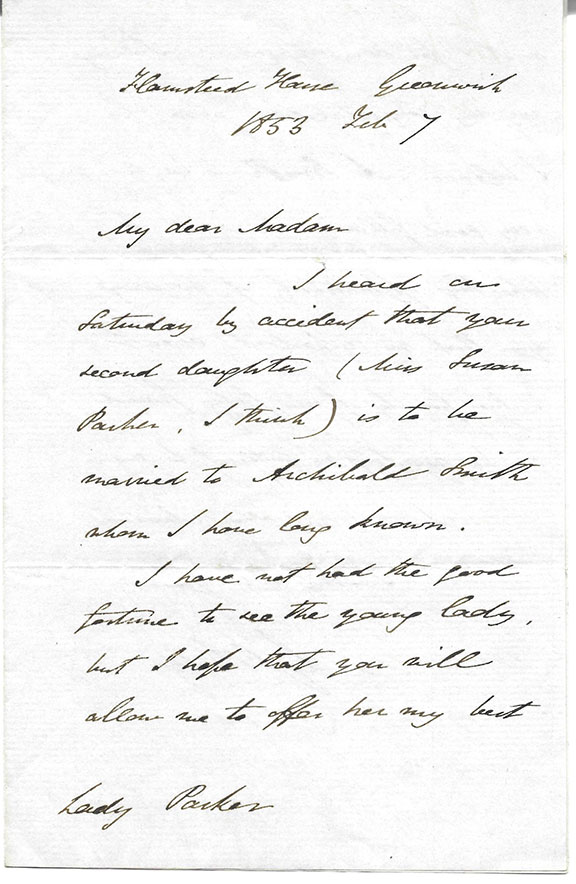 Flamsteed House Greenwich
1853 Feb 7
My dear Madam
I heard on
Saturday by accident that your
second daughter (Miss Susan
Parker, I think) is to be
married to Archibald Smith
whom I have long known.
I have not had the good
fortune to see the young lady,
but I hope that you will
allow me to offer her my best
Lady Parker